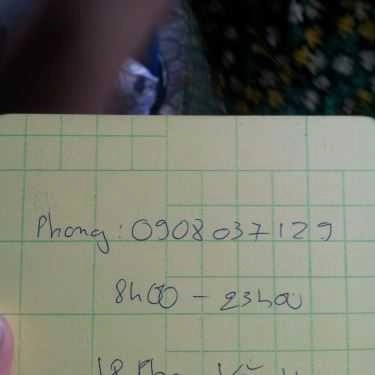 Phong: 0908037129
8h00 - 23h00
18